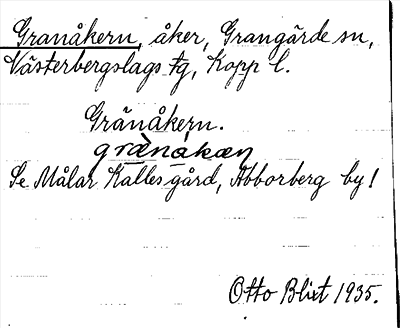 Granåkern, åker, Grangärde sn,
Västerbergslags tg, Kopp l.
Gränåkern.
grænåkæɳ
Se Målar Kalles gård, Abborberg by!
Otto Blixt 1935.